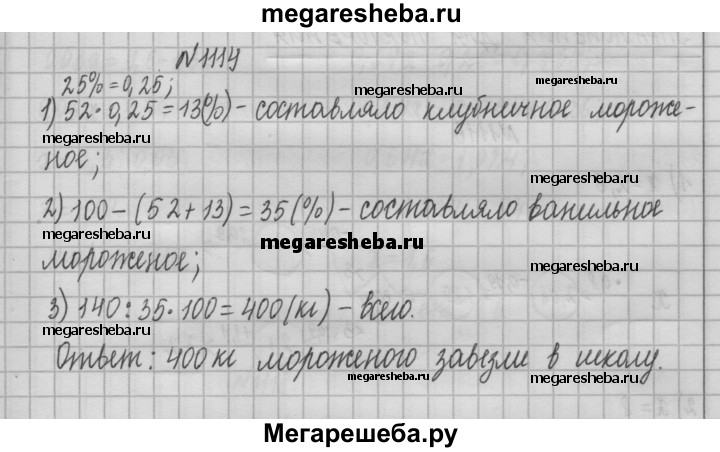 megaresheba.ru
N 1114
25% = 0,25;
megaresheba.ru
1) 52 · 0,25 = 13(%) - составляло клубничное мороже-
megaresheba.ru
ное;
megaresheba.ru
2) 100 - (52 + 13) = 35 (%) - составляло ванильное
megaresheba.ru
megaresheba.ru
мороженое;
megaresheba.ru
3) 140 : 35 · 100 = 400 (кг) - всего.
megaresheba.ru
megaresheba.ru
Ответ: 400 кг мороженого завезли в школу.
megaresheba.ru
megaresheba.ru
Мегарешеба.ру